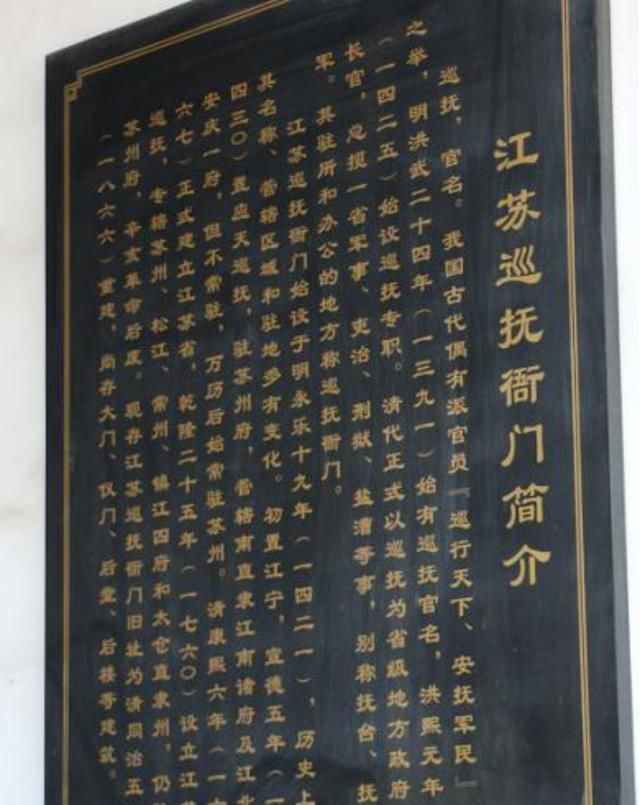 江苏巡抚衙门简介
巡抚，官名。我国古代偶有派官员『巡行天下、安抚军民』
之举，明洪武二十四年（一三九一）始有巡抚官名，洪熙元年
（一四二五）始设巡抚专职。清代正式以巡抚为省级地方政府
长官，总揽一省军事、吏治、刑狱、盐漕等事，别称抚台、抚
军。其驻所和办公的地方称巡抚衙门。
江苏巡抚衙门始设于明永乐十九年（一四二一），历史上
其名称、管辖区域和驻地多有变化。初置江宁，宣德五年（一
四三〇）置应天巡抚，驻苏州府，管辖南直隶江南诸府及江北
安庆一府，但不常驻，万历后始常驻苏州。清康熙六年（一六
六七）正式建立江苏省，乾隆二十五年（一七六〇）设立江苏
巡抚，专辖苏州、松江、常州、镇江四府和太仓直隶州，仍
苏州府，辛亥革命后废。现存江苏巡抚衙门旧址为清同治五
（一八六六）重建，尚存大门、仪门、后堂、后楼等建筑。